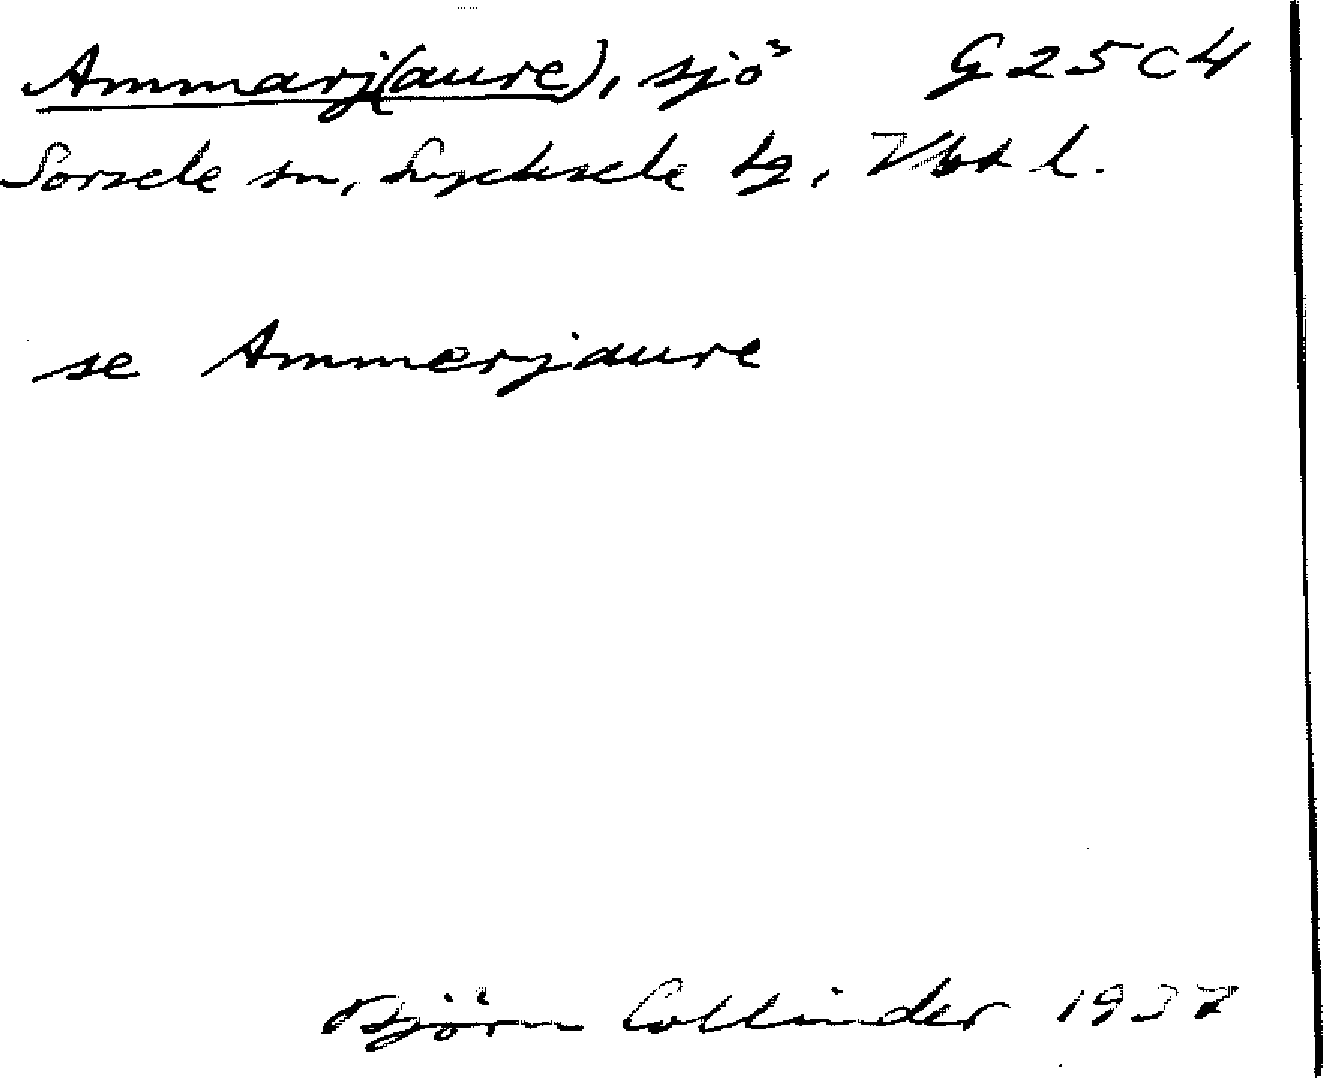 Ammarj(aure), sjö G 25 C 4
Sorsele sn, Lycksele tg, Vbt l.
se Ammerjaure
Björn Collinder 1937